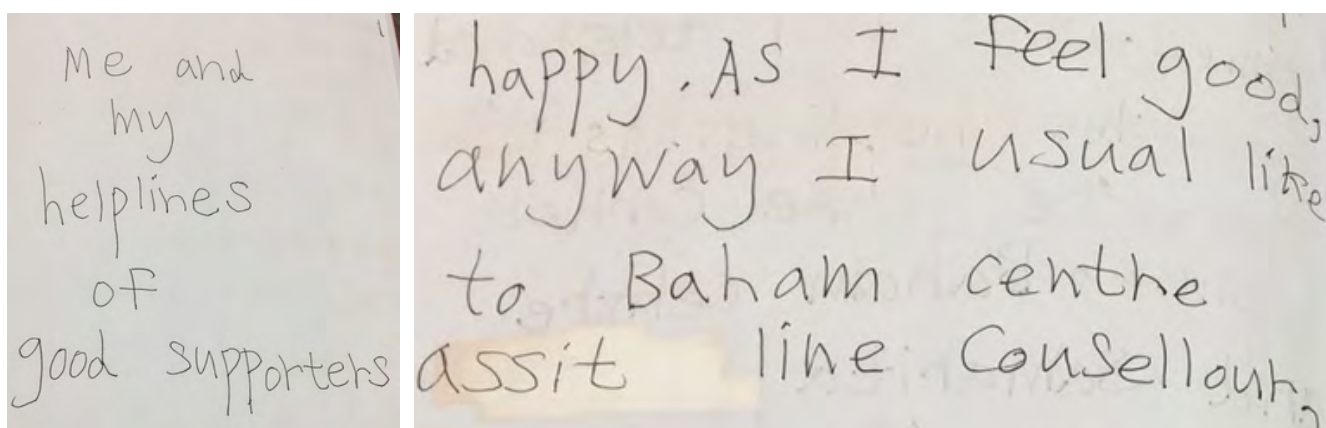 Me and
my
helplines
of
good supporters
happy. As I feel good,
anyway I usual like
to Baham centre
assit line Cousellour,